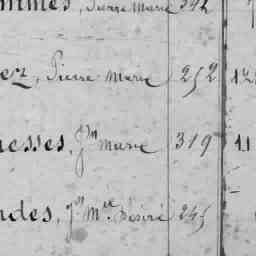 Pierre Marie 342
ez, Pierre Marie 252 12
esses, Jn Marie 319 11
des, Jn Mie Désiré 245